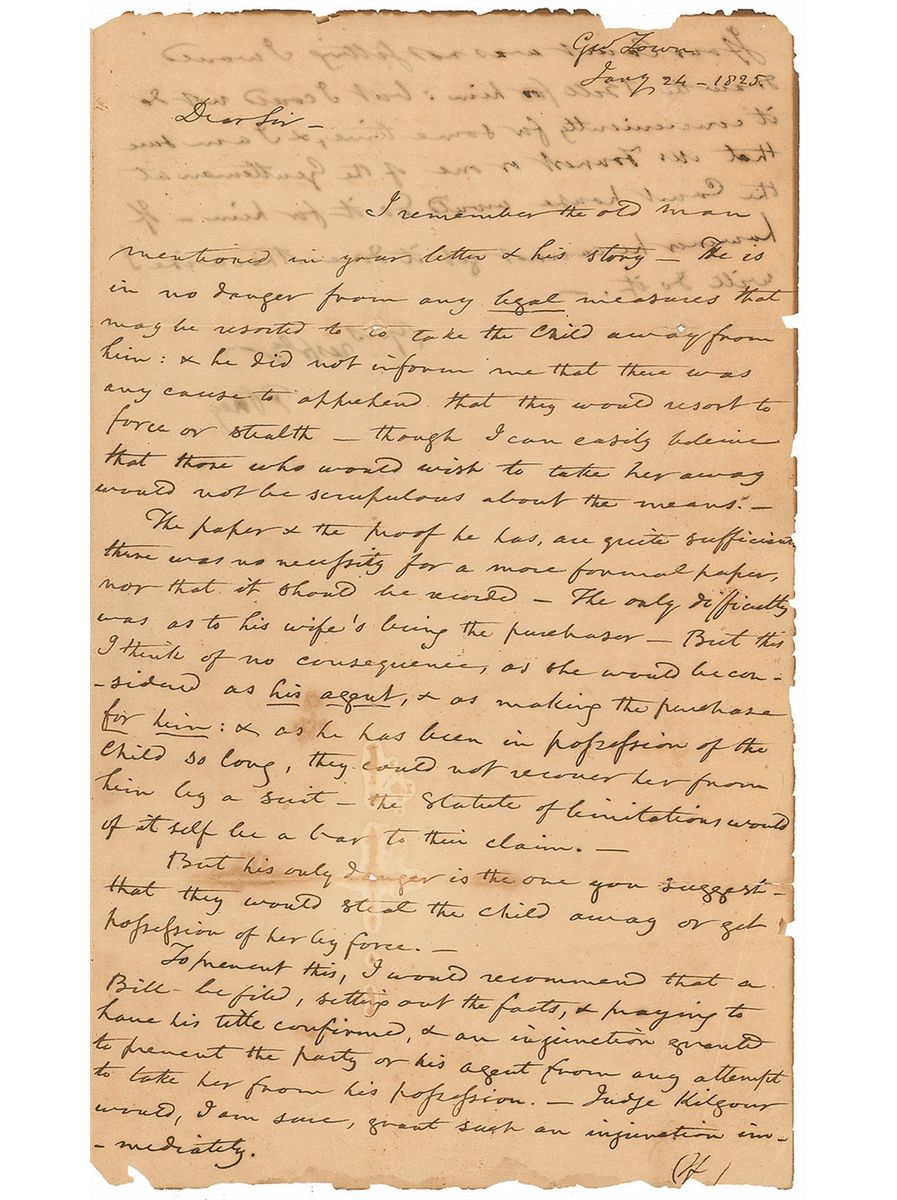 Geo Town
Jany 24 - 1825.
Dear Sir -
I remember the old man
mentioned in your letter & his story - He is
in no danger from any legal measures that
may be resorted to to take the Child away from
him: & he did not inform me that there was
any cause to apprehend that they would resort to
force or stealth - though I can easily believe
that those who would wish to take her away
would not be scrupulous about the means. -
The paper & the proof he has, are quite sufficient
there was no necessity for a more formal paper,
nor that it should be recorded - The only difficulty
was as to his wife's being the purchaser - But this
I think of no consequence, as she would be con-
-sidered as his agent, & as making the purchase
for him: & as he has been in possession of the
Child so long, they could not recover her from
him by a suit - the Statute of limitations would
of itself be a bar to their claim. -
But his only danger is the one you suggest -
that they would steal the child away or get
possession of her by force. -
To prevent this, I would recommend that a
Bill be filed, setting out the facts, & praying to
have his title confirmed, & an injunction granted
to prevent the party or his agent from any attempt
to take her from his possession. - Judge Kilgour
would, I am sure, grant such an injunction im-
-mediately.
(If)